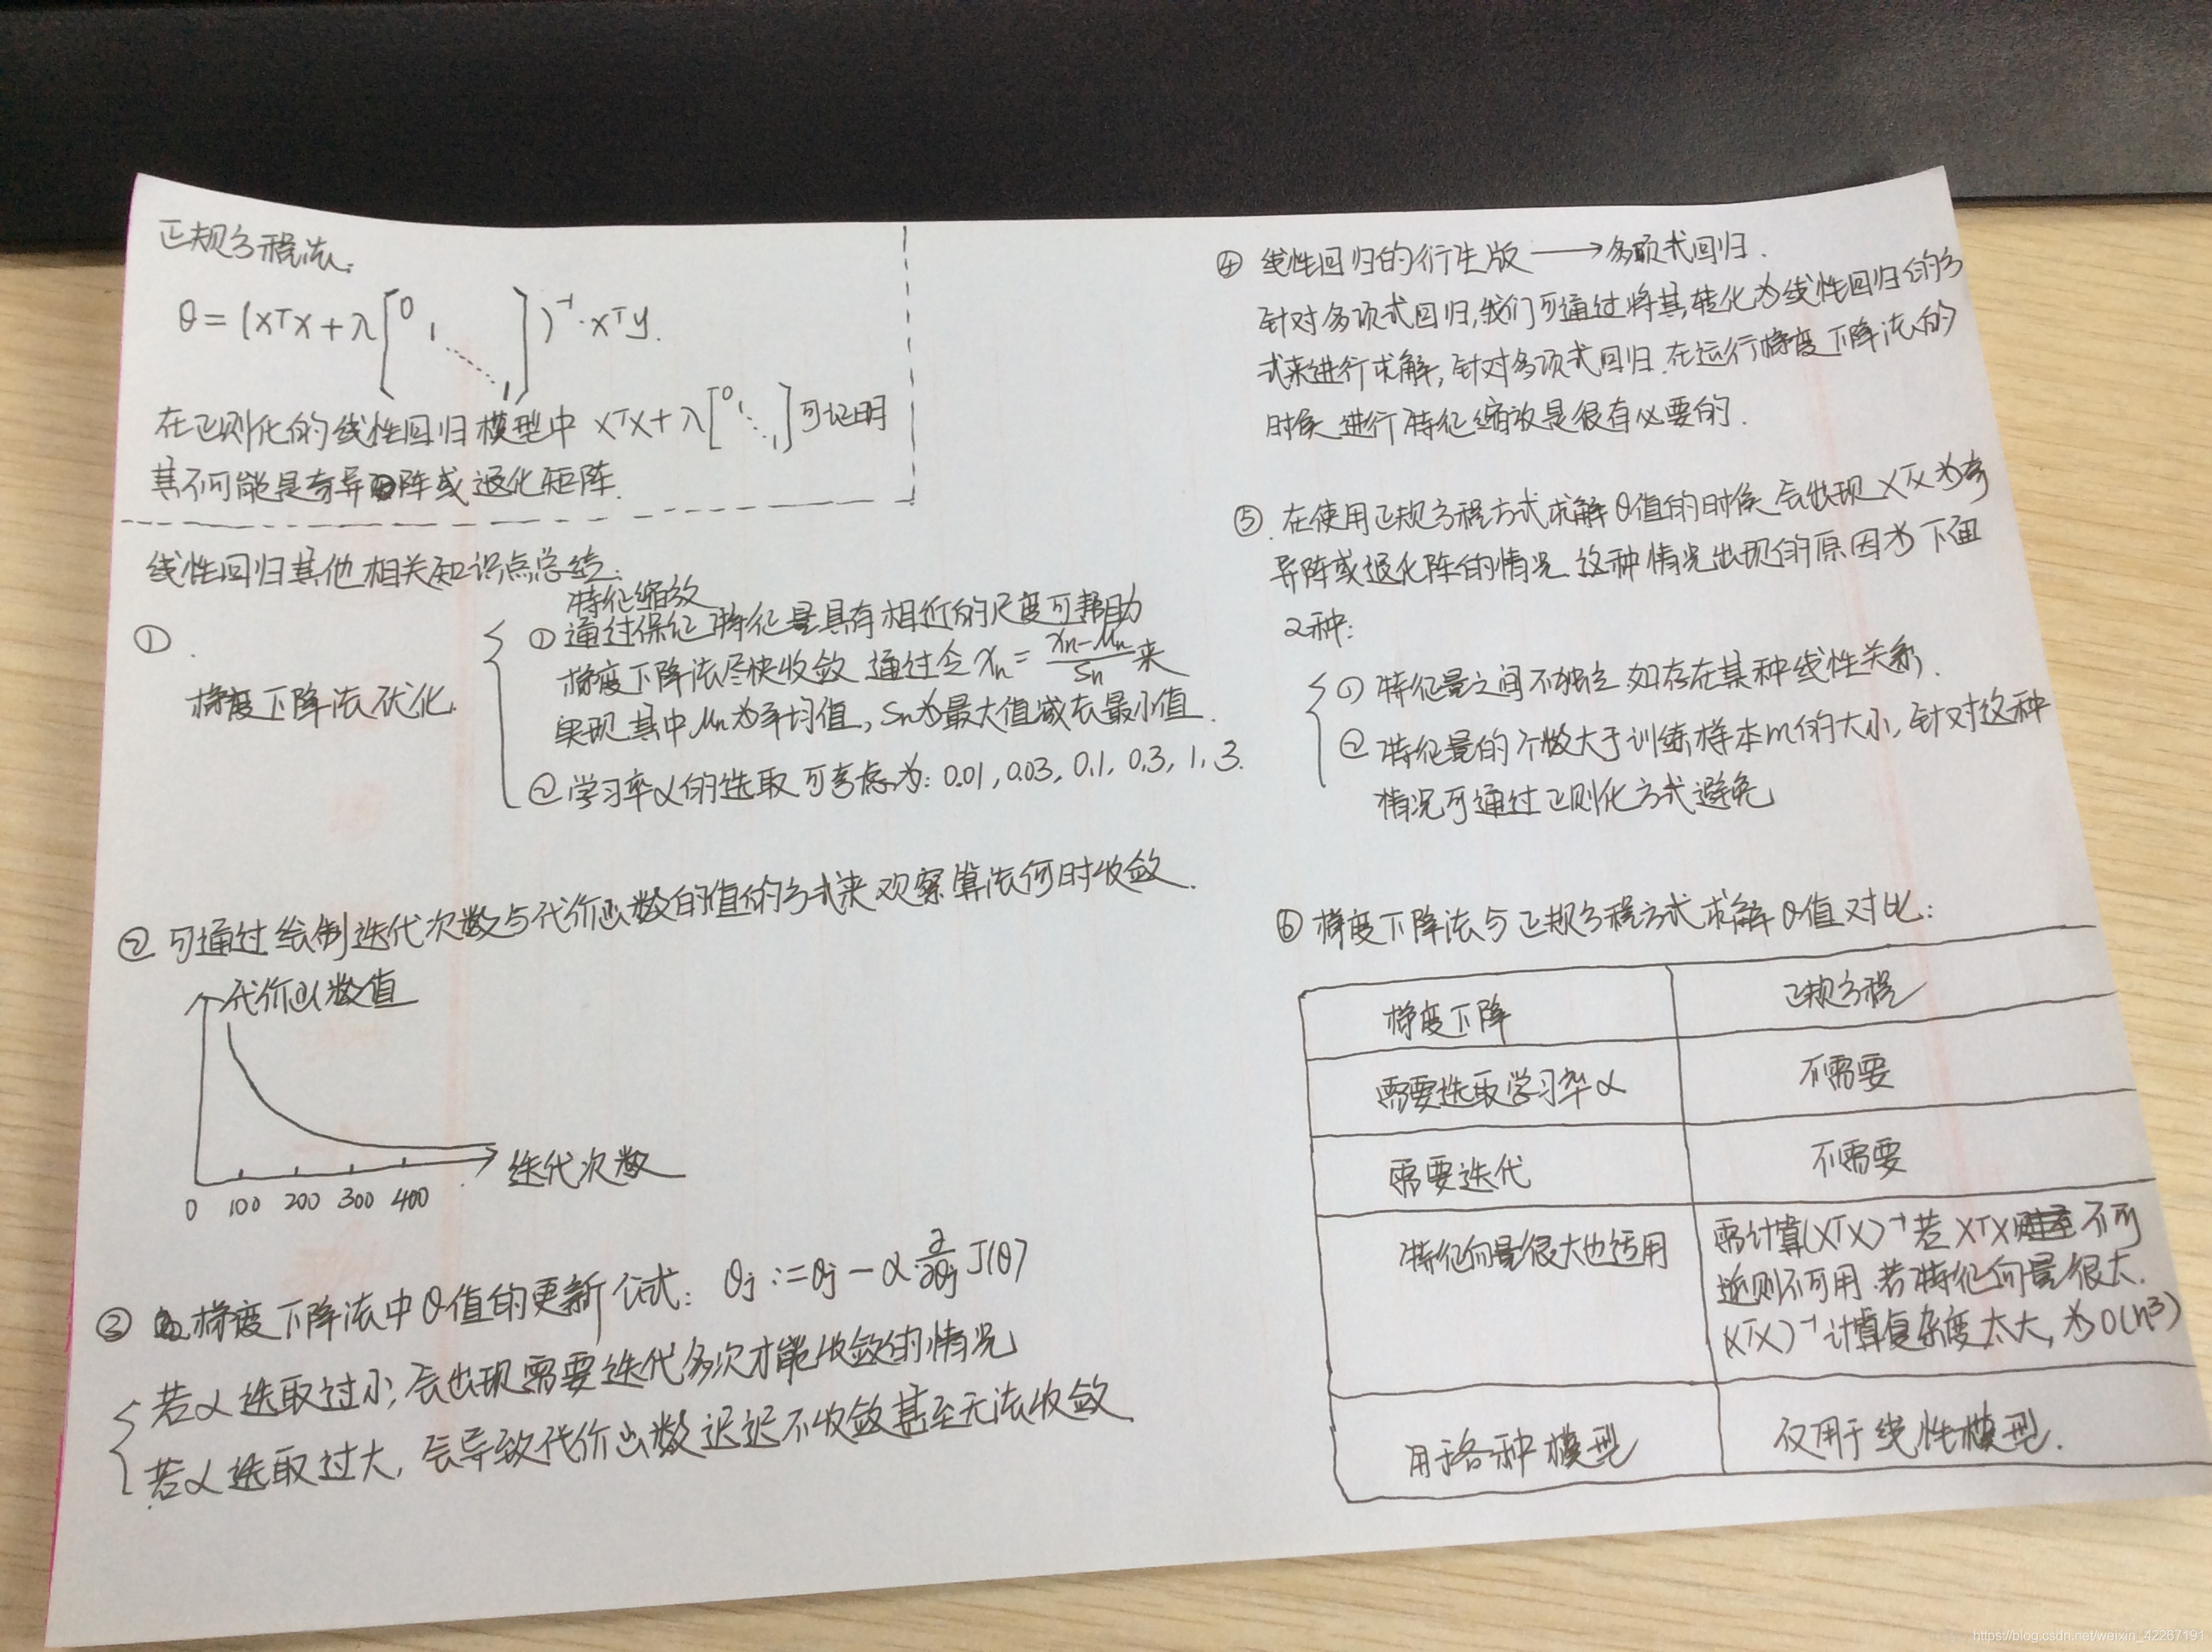 正规方程法:
θ = (XᵀX + λ[0 1 ⋱ 1])⁻¹·Xᵀy.
在正则化的线性回归模型中 XᵀX + λ[0 1 ⋱ 1] 可证明
其不可能是奇异阵或退化矩阵.
线性回归其他相关知识点总结:
① 梯度下降法优化.
特征缩放
① 通过保证特征量具有相近的尺度可帮助
梯度下降法尽快收敛 通过令 xn = (xn-μn)/Sn 来
实现 其中μn为平均值, Sn为最大值减去最小值.
② 学习率α的选取可考虑为: 0.01, 0.03, 0.1, 0.3, 1, 3.
② 可通过绘制迭代次数与代价函数的值的方式来观察算法何时收敛.
代价函数值
迭代次数
0 100 200 300 400
③ 梯度下降法中θ值的更新公式: θj := θj - α ∂/∂θj J(θ)
若α选取过小, 会出现需要迭代多次才能收敛的情况
若α选取过大, 会导致代价函数迟迟不收敛甚至无法收敛.
④ 线性回归的衍生版 → 多项式回归.
针对多项式回归, 我们可通过将其转化为线性回归的方
式来进行求解, 针对多项式回归. 在运行梯度下降法的
时候 进行特征缩放是很有必要的.
⑤. 在使用正规方程方式求解θ值的时候 会出现XᵀX为奇
异阵或退化阵的情况. 这种情况出现的原因为下面
2种:
① 特征量之间不独立 如存在某种线性关系.
② 特征量的个数大于训练样本m的大小, 针对这种
情况可通过正则化方式避免
⑥ 梯度下降法与正规方程方式求解θ值对比:
梯度下降 正规方程
需要选取学习率α 不需要
需要迭代 不需要
特征向量很大也适用 需计算(XᵀX)⁻¹ 若XᵀX不可
逆则不可用. 若特征向量很大.
(XᵀX)⁻¹计算复杂度太大, 为O(n³)
用于各种模型 仅用于线性模型.
https://blog.csdn.net/weixin_42267191